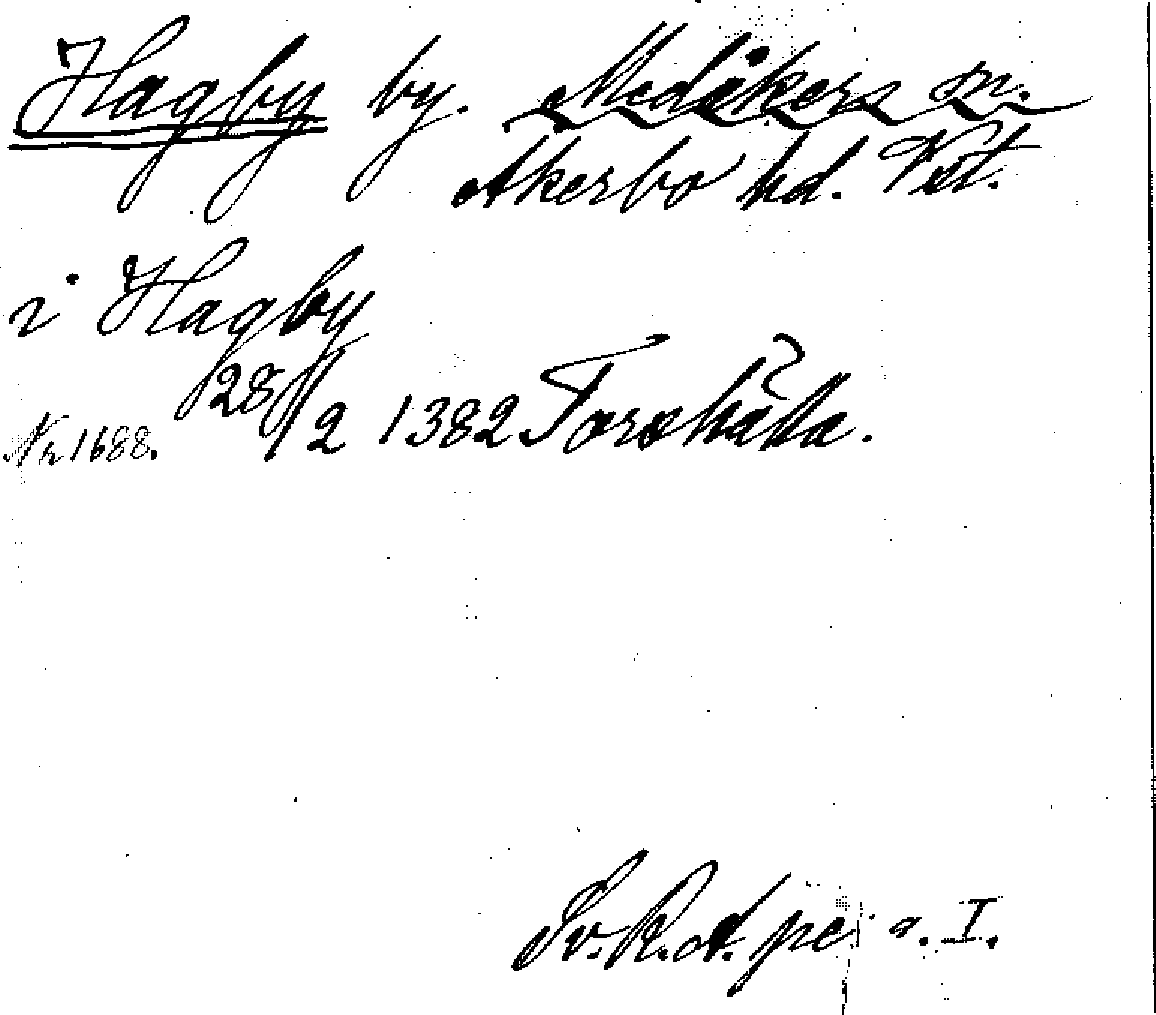 Hagby by. Medåkers sn.
Åkerbo hd. Vst.
i Hagby
28/2 1382 Torshälla.
Nr 1688.
Sv. R. A. pe a. I.